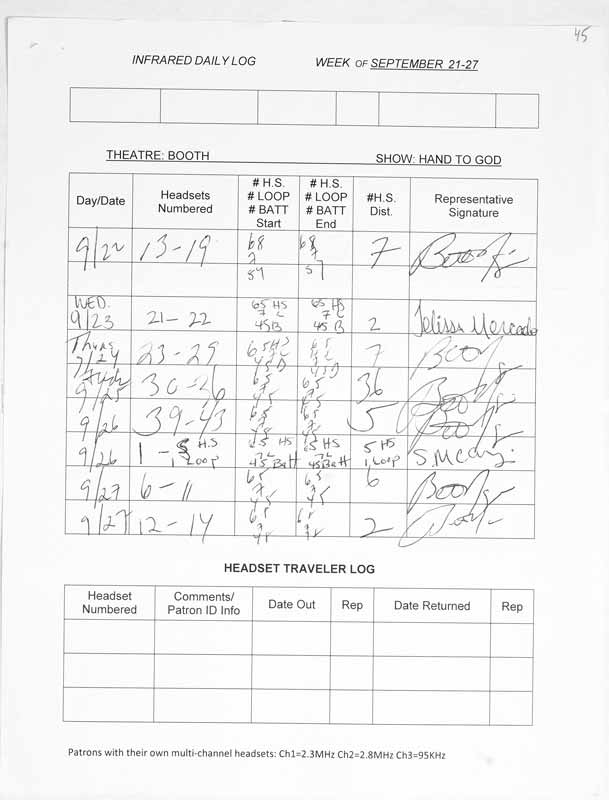 45
INFRARED DAILY LOG WEEK OF SEPTEMBER 21-27
THEATRE: BOOTH SHOW: HAND TO GOD
Day/Date Headsets Numbered # H.S. # LOOP # BATT Start # H.S. # LOOP # BATT End #H.S. Dist. Representative Signature
9/22 13-19 68 7 57 68 7 57 7
WED. 9/23 21-22 65 HS 7 L 45 B 65 HS 7 L 45 B 2 Melissa Mercado
Thurs 23-29 65 7
9/25 65 65 36
9/26 39-43 65 65 5
9/26 1-5 H.S 1 Loop 65 HS 7L 45 Batt 65 HS 7L 45 Batt 5 HS 1 Loop
9/27 6-11 65 7 45 65 7 45 6
9/27 12-14 65 65 2
HEADSET TRAVELER LOG
Headset Numbered Comments/ Patron ID Info Date Out Rep Date Returned Rep
Patrons with their own multi-channel headsets: Ch1=2.3MHz Ch2=2.8MHz Ch3=95KHz